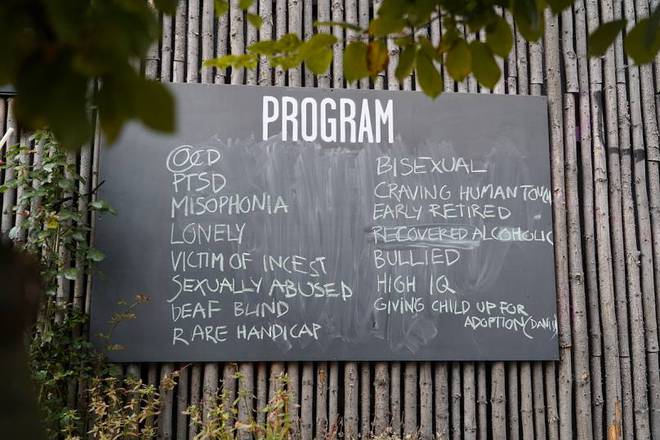 PROGRAM
OCD
PTSD
MISOPHONIA
LONELY
VICTIM OF INCEST
SEXUALLY ABUSED
DEAF BLIND
RARE HANDICAP
BISEXUAL
CRAVING HUMAN TOUCH
EARLY RETIRED
RECOVERED ALCOHOLIC
BULLIED
HIGH IQ
GIVING CHILD UP FOR
ADOPTION